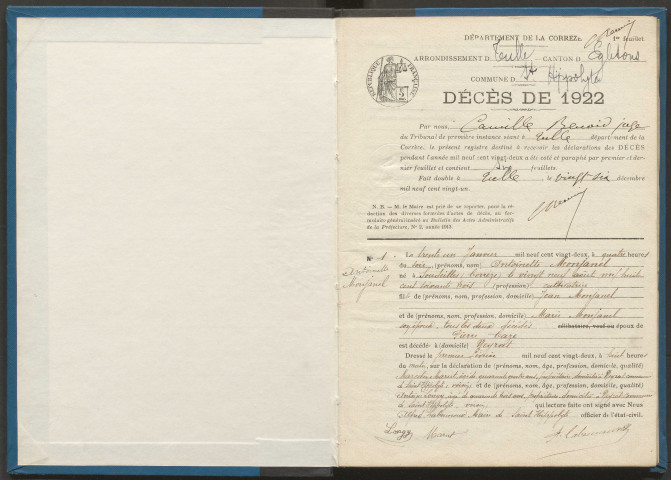 DÉPARTEMENT DE LA CORRÈZE. 1er feuillet.
ARRONDISSEMENT D Tulle CANTON D Egletons
COMMUNE D St Hippolyte
RÉPUBLIQUE FRANÇAISE
DÉCÈS DE 1922
Par nous, Camille Benoid juge
du Tribunal de première instance séant à Tulle département de la
Corrèze, le présent registre destiné à recevoir les déclarations des DÉCÈS
pendant l'année mil neuf cent vingt-deux a été coté et paraphé par premier et der-
nier feuillet et contient six feuillets.
Fait double à Tulle, le vingt-six décembre
mil neuf cent vingt-un.
N. B. — M. le Maire est prié de se reporter, pour la ré-
daction des diverses formules d'actes de décès, au for-
mulaire général inséré au Bulletin des Actes Administratifs
de la Préfecture, No 2, année 1913.
No 1
Antoinette
Monjanel
Le trente un Janvier mil neuf cent vingt-deux, à quatre heures
du soir (prénoms, nom) Antoinette Monjanel
né à Soudeilles (Corrèze) le vingt neuf août mil huit
cent soixante trois (profession) cultivatrice
fils de (prénoms, nom, profession, domicile) Jean Monjanel
et de (prénoms, nom, profession, domicile) Marie Monjanel
son épouse, tous les deux décédés célibataire, veuf ou époux de
Pierre
est décédé à (domicile)
Dressé le premier Février mil neuf cent vingt-deux, à huit heures
du matin, sur la déclaration de (prénoms, nom, âge, profession, domicile, qualité)
quarante quatre ans, domicilié commune
de Saint Hippolyte, voisin et de (prénoms, nom, âge, profession, domicile, qualité)
quarante huit ans, domicilié commune
de Saint Hippolyte, voisin qui lecture faite ont signé avec Nous
Maire de Saint Hippolyte officier de l'état-civil.